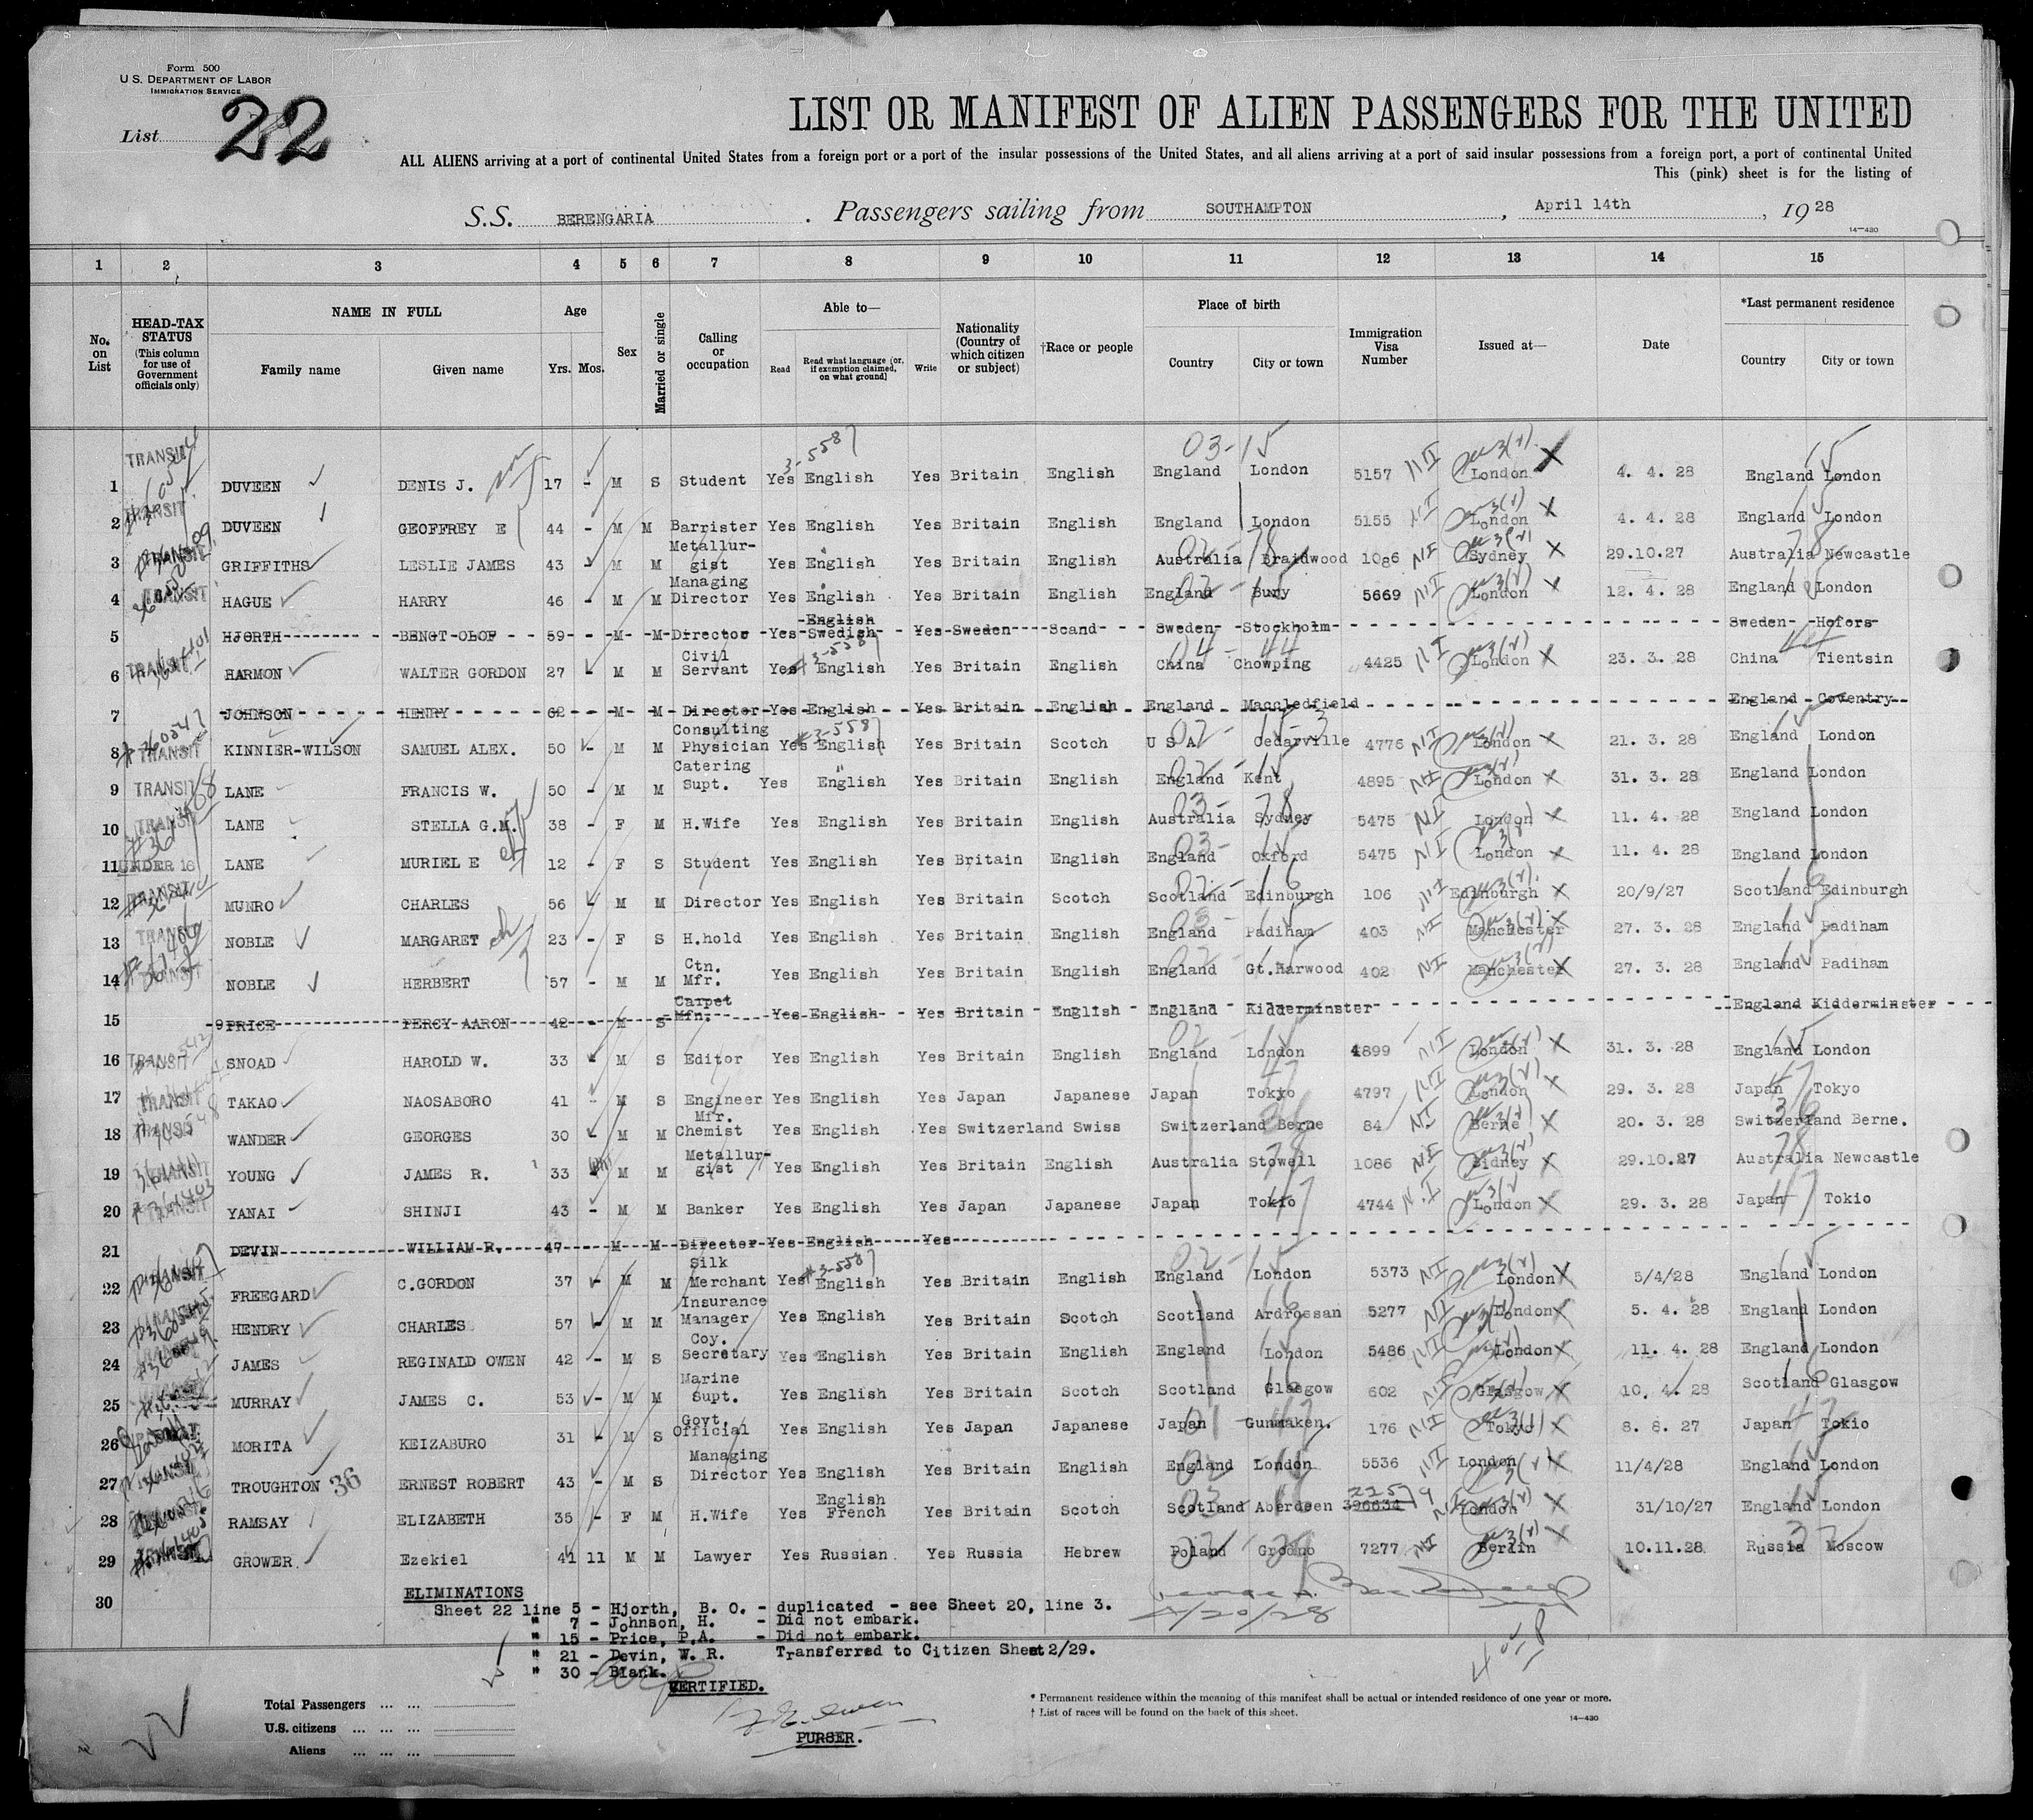 Form 500
U.S. DEPARTMENT OF LABOR
IMMIGRATION SERVICE
List 22
LIST OR MANIFEST OF ALIEN PASSENGERS FOR THE UNITED
ALL ALIENS arriving at a port of continental United States from a foreign port or a port of the insular possessions of the United States, and all aliens arriving at a port of said insular possessions from a foreign port, a port of continental United
This (pink) sheet is for the listing of
S.S. BERENGARIA . Passengers sailing from SOUTHAMPTON , April 14th , 1928
14—430
1 2 3 4 5 6 7 8 9 10 11 12 13 14 15
No. on List
HEAD-TAX STATUS (This column for use of Government officials only)
NAME IN FULL Family name Given name
Age Yrs. Mos.
Sex
Married or single
Calling or occupation
Able to— Read Read what language [or, if exemption claimed, on what ground] Write
Nationality (Country of which citizen or subject)
†Race or people
Place of birth Country City or town
Immigration Visa Number
Issued at—
Date
*Last permanent residence Country City or town
1 TRANSIT DUVEEN DENIS J. 17 - M S Student Yes English Yes Britain English England London 5157 London 4. 4. 28 England London
2 TRANSIT DUVEEN GEOFFREY E 44 - M M Barrister Yes English Yes Britain English England London 5155 London 4. 4. 28 England London
3 TRANSIT GRIFFITHS LESLIE JAMES 43 - M M Metallur-gist Yes English Yes Britain English Australia Braidwood 1086 Sydney 29.10.27 Australia Newcastle
4 TRANSIT HAGUE HARRY 46 - M M Managing Director Yes English Yes Britain English England Bury 5669 London 12. 4. 28 England London
5 HJORTH BENGT OLOF 59 - M M Director Yes English Swedish Yes Sweden Scand Sweden Stockholm Sweden Hofors
6 TRANSIT HARMON WALTER GORDON 27 - M M Civil Servant Yes English Yes Britain English China Chowping 4425 London 23. 3. 28 China Tientsin
7 JOHNSON HENRY 62 - M M Director Yes English Yes Britain English England Maccledfield England Coventry
8 TRANSIT KINNIER-WILSON SAMUEL ALEX. 50 - M M Consulting Physician Yes English Yes Britain Scotch U S A Cedarville 4776 London 21. 3. 28 England London
9 TRANSIT LANE FRANCIS W. 50 - M M Catering Supt. Yes English Yes Britain English England Kent 4895 London 31. 3. 28 England London
10 TRANSIT LANE STELLA G.M. 38 - F M H.Wife Yes English Yes Britain English Australia Sydney 5475 London 11. 4. 28 England London
11 UNDER 16 LANE MURIEL E 12 - F S Student Yes English Yes Britain English England Oxford 5475 London 11. 4. 28 England London
12 TRANSIT MUNRO CHARLES 56 - M M Director Yes English Yes Britain Scotch Scotland Edinburgh 106 Edinburgh 20/9/27 Scotland Edinburgh
13 TRANSIT NOBLE MARGARET 23 - F S H.hold Yes English Yes Britain English England Padiham 403 Manchester 27. 3. 28 England Padiham
14 TRANSIT NOBLE HERBERT 57 - M M Ctn. Mfr. Yes English Yes Britain English England Gt.Harwood 402 Manchester 27. 3. 28 England Padiham
15 PRICE PERCY AARON 42 - M S Carpet Mfn. Yes English Yes Britain English England Kidderminster England Kidderminster
16 TRANSIT SNOAD HAROLD W. 33 - M S Editor Yes English Yes Britain English England London 4899 London 31. 3. 28 England London
17 TRANSIT TAKAO NAOSABORO 41 - M S Engineer Yes English Yes Japan Japanese Japan Tokyo 4797 London 29. 3. 28 Japan Tokyo
18 TRANSIT WANDER GEORGES 30 - M M Mfr. Chemist Yes English Yes Switzerland Swiss Switzerland Berne 84 Berne 20. 3. 28 Switzerland Berne.
19 TRANSIT YOUNG JAMES R. 33 M M Metallur-gist Yes English Yes Britain English Australia Stowell 1086 Sidney 29.10.27 Australia Newcastle
20 TRANSIT YANAI SHINJI 43 - M M Banker Yes English Yes Japan Japanese Japan Tokio 4744 London 29. 3. 28 Japan Tokio
21 DEVIN WILLIAM R. 47 - M M Director Yes English Yes
22 TRANSIT FREEGARD C.GORDON 37 - M M Silk Merchant Yes English Yes Britain English England London 5373 London 5/4/28 England London
23 TRANSIT HENDRY CHARLES 57 - M M Insurance Manager Yes English Yes Britain Scotch Scotland Ardrossan 5277 London 5. 4. 28 England London
24 JAMES REGINALD OWEN 42 - M S Coy. Secretary Yes English Yes Britain English England London 5486 London 11. 4. 28 England London
25 MURRAY JAMES C. 53 - M M Marine Supt. Yes English Yes Britain Scotch Scotland Glasgow 602 Glasgow 10. 4. 28 Scotland Glasgow
26 MORITA KEIZABURO 31 - M S Govt. Official Yes English Yes Japan Japanese Japan Gunmaken. 176 Tokyo 8. 8. 27 Japan Tokio
27 TRANSIT TROUGHTON 36 ERNEST ROBERT 43 - M S Managing Director Yes English Yes Britain English England London 5536 London 11/4/28 England London
28 RAMSAY ELIZABETH 35 - F M H.Wife Yes English French Yes Britain Scotch Scotland Aberdeen 396634 London 31/10/27 England London
29 TRANSIT GROWER Ezekiel 41 11 M M Lawyer Yes Russian Yes Russia Hebrew Poland Grodno 7277 Berlin 10.11.28 Russia Moscow
30
ELIMINATIONS
Sheet 22 line 5 - Hjorth, B. O. - duplicated - see Sheet 20, line 3.
" 7 - Johnson, H. - Did not embark.
" 15 - Price, P.A. - Did not embark.
" 21 - Devin, W. R. Transferred to Citizen Sheet 2/29.
" 30 - Blank.
4/20/28
CERTIFIED.
PURSER.
Total Passengers ... ...
U.S. citizens ... ... ...
Aliens ... ... ...
* Permanent residence within the meaning of this manifest shall be actual or intended residence of one year or more.
† List of races will be found on the back of this sheet.
14—430